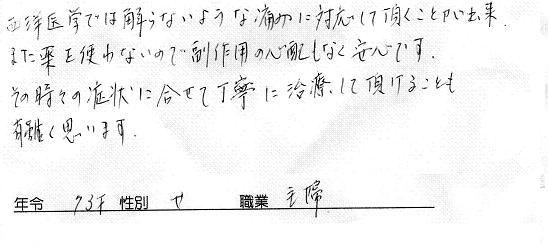 西洋医学では解らないような痛みに対応して頂くことが出来、
また薬を使わないので副作用の心配もなく安心です。
その時々の症状に合せて丁寧に治療して頂けることも
有難く思います。
年令 73才 性別 女 職業 主婦